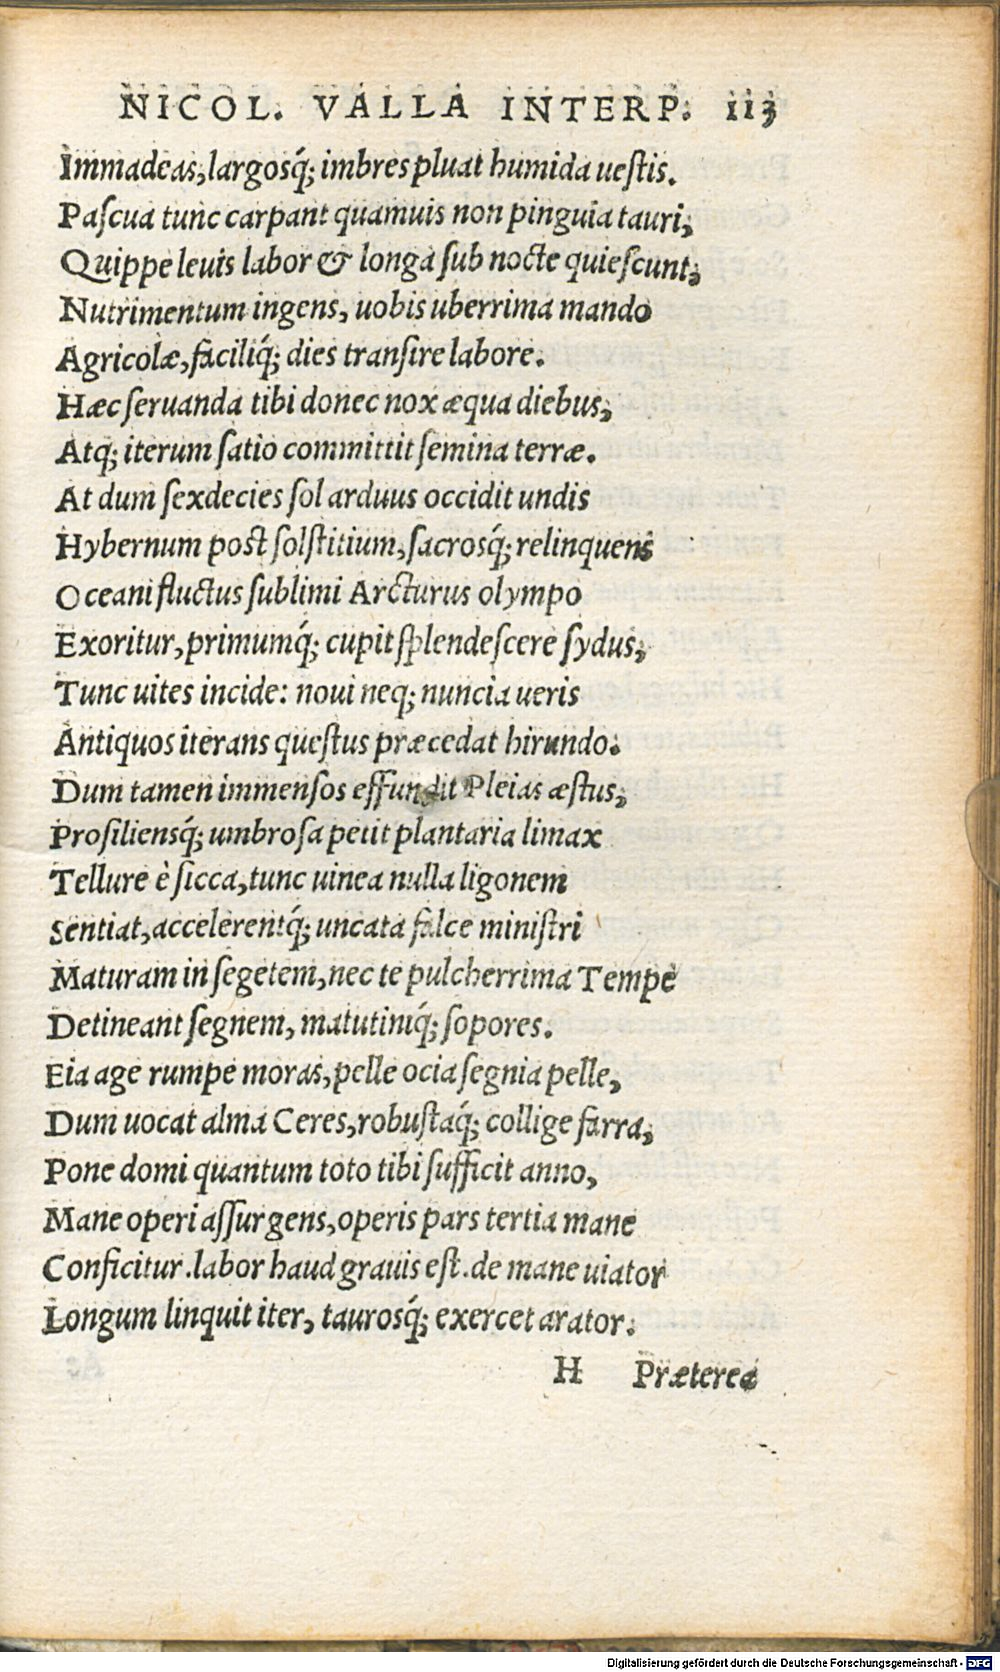 NICOL. VALLA INTERP. 113
Immadeas, largosq́; imbres pluat humida uestis.
Pascua tunc carpant quamuis non pinguia tauri,
Quippe leuis labor & longa sub nocte quiescunt,
Nutrimentum ingens, uobis uberrima mando
Agricolæ, faciliq́; dies transire labore.
Hæc seruanda tibi donec nox æqua diebus,
Atq; iterum satio committit semina terræ.
At dum sexdecies sol arduus occidit undis
Hybernum post solstitium, sacrosq́; relinquens
Oceani fluctus sublimi Arcturus olympo
Exoritur, primumq́; cupit splendescere sydus,
Tunc uites incide: noui neq; nuncia ueris
Antiquos iterans questus præcedat hirundo.
Dum tamen immensos effundit Pleias æstus,
Prosiliensq́; umbrosa petit plantaria limax
Tellure è sicca, tunc uinea nulla ligonem
Sentiat, accelerentq́; uncata falce ministri
Maturam in segetem, nec te pulcherrima Tempe
Detineant segnem, matutiniq́; sopores.
Eia age rumpe moras, pelle ocia segnia pelle,
Dum uocat alma Ceres, robustaq́; collige farra,
Pone domi quantum toto tibi sufficit anno,
Mane operi assurgens, operis pars tertia mane
Conficitur. labor haud grauis est. de mane uiator
Longum linquit iter, taurosq́; exercet arator.
H Præterea
Digitalisierung gefördert durch die Deutsche Forschungsgemeinschaft - DFG